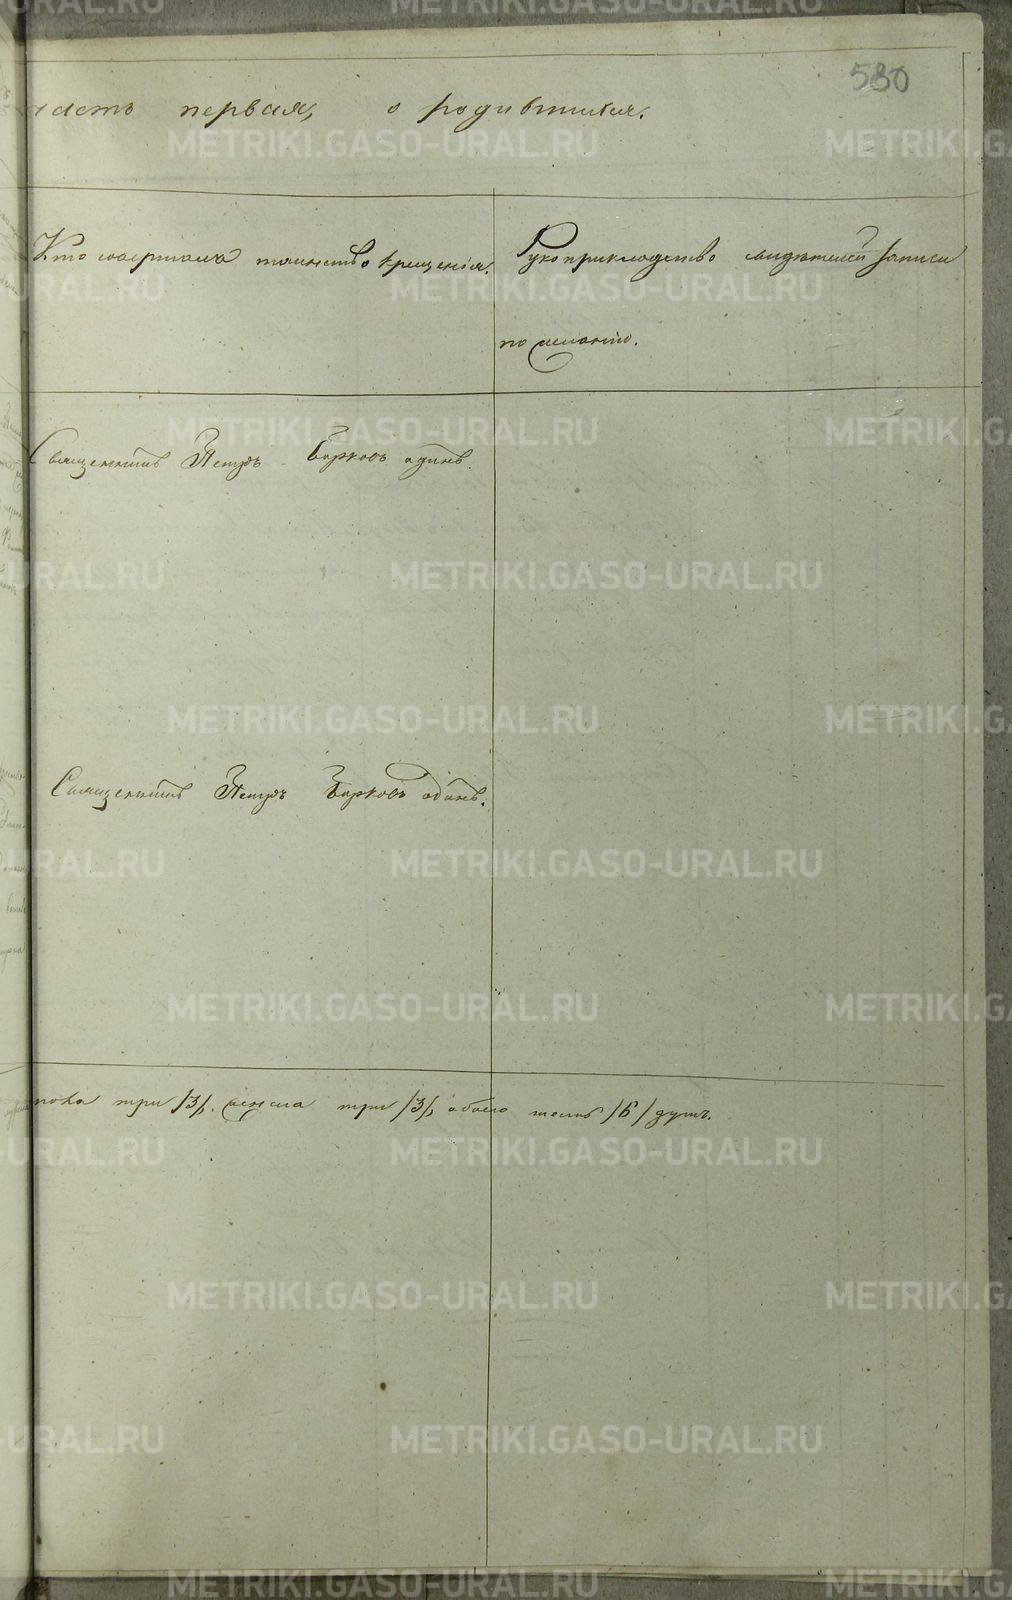 580
часть первая, о родившихся.
Кто совершалъ таинство крещенія.
Рукоприкладство свидѣтелей записи
по желанію.
Священникъ Петръ Борковъ одинъ.
Священникъ Петръ Борковъ одинъ.
пола три /3/, женска три /3/, обоего шесть /6/ душъ.
METRIKI.GASO-URAL.RU